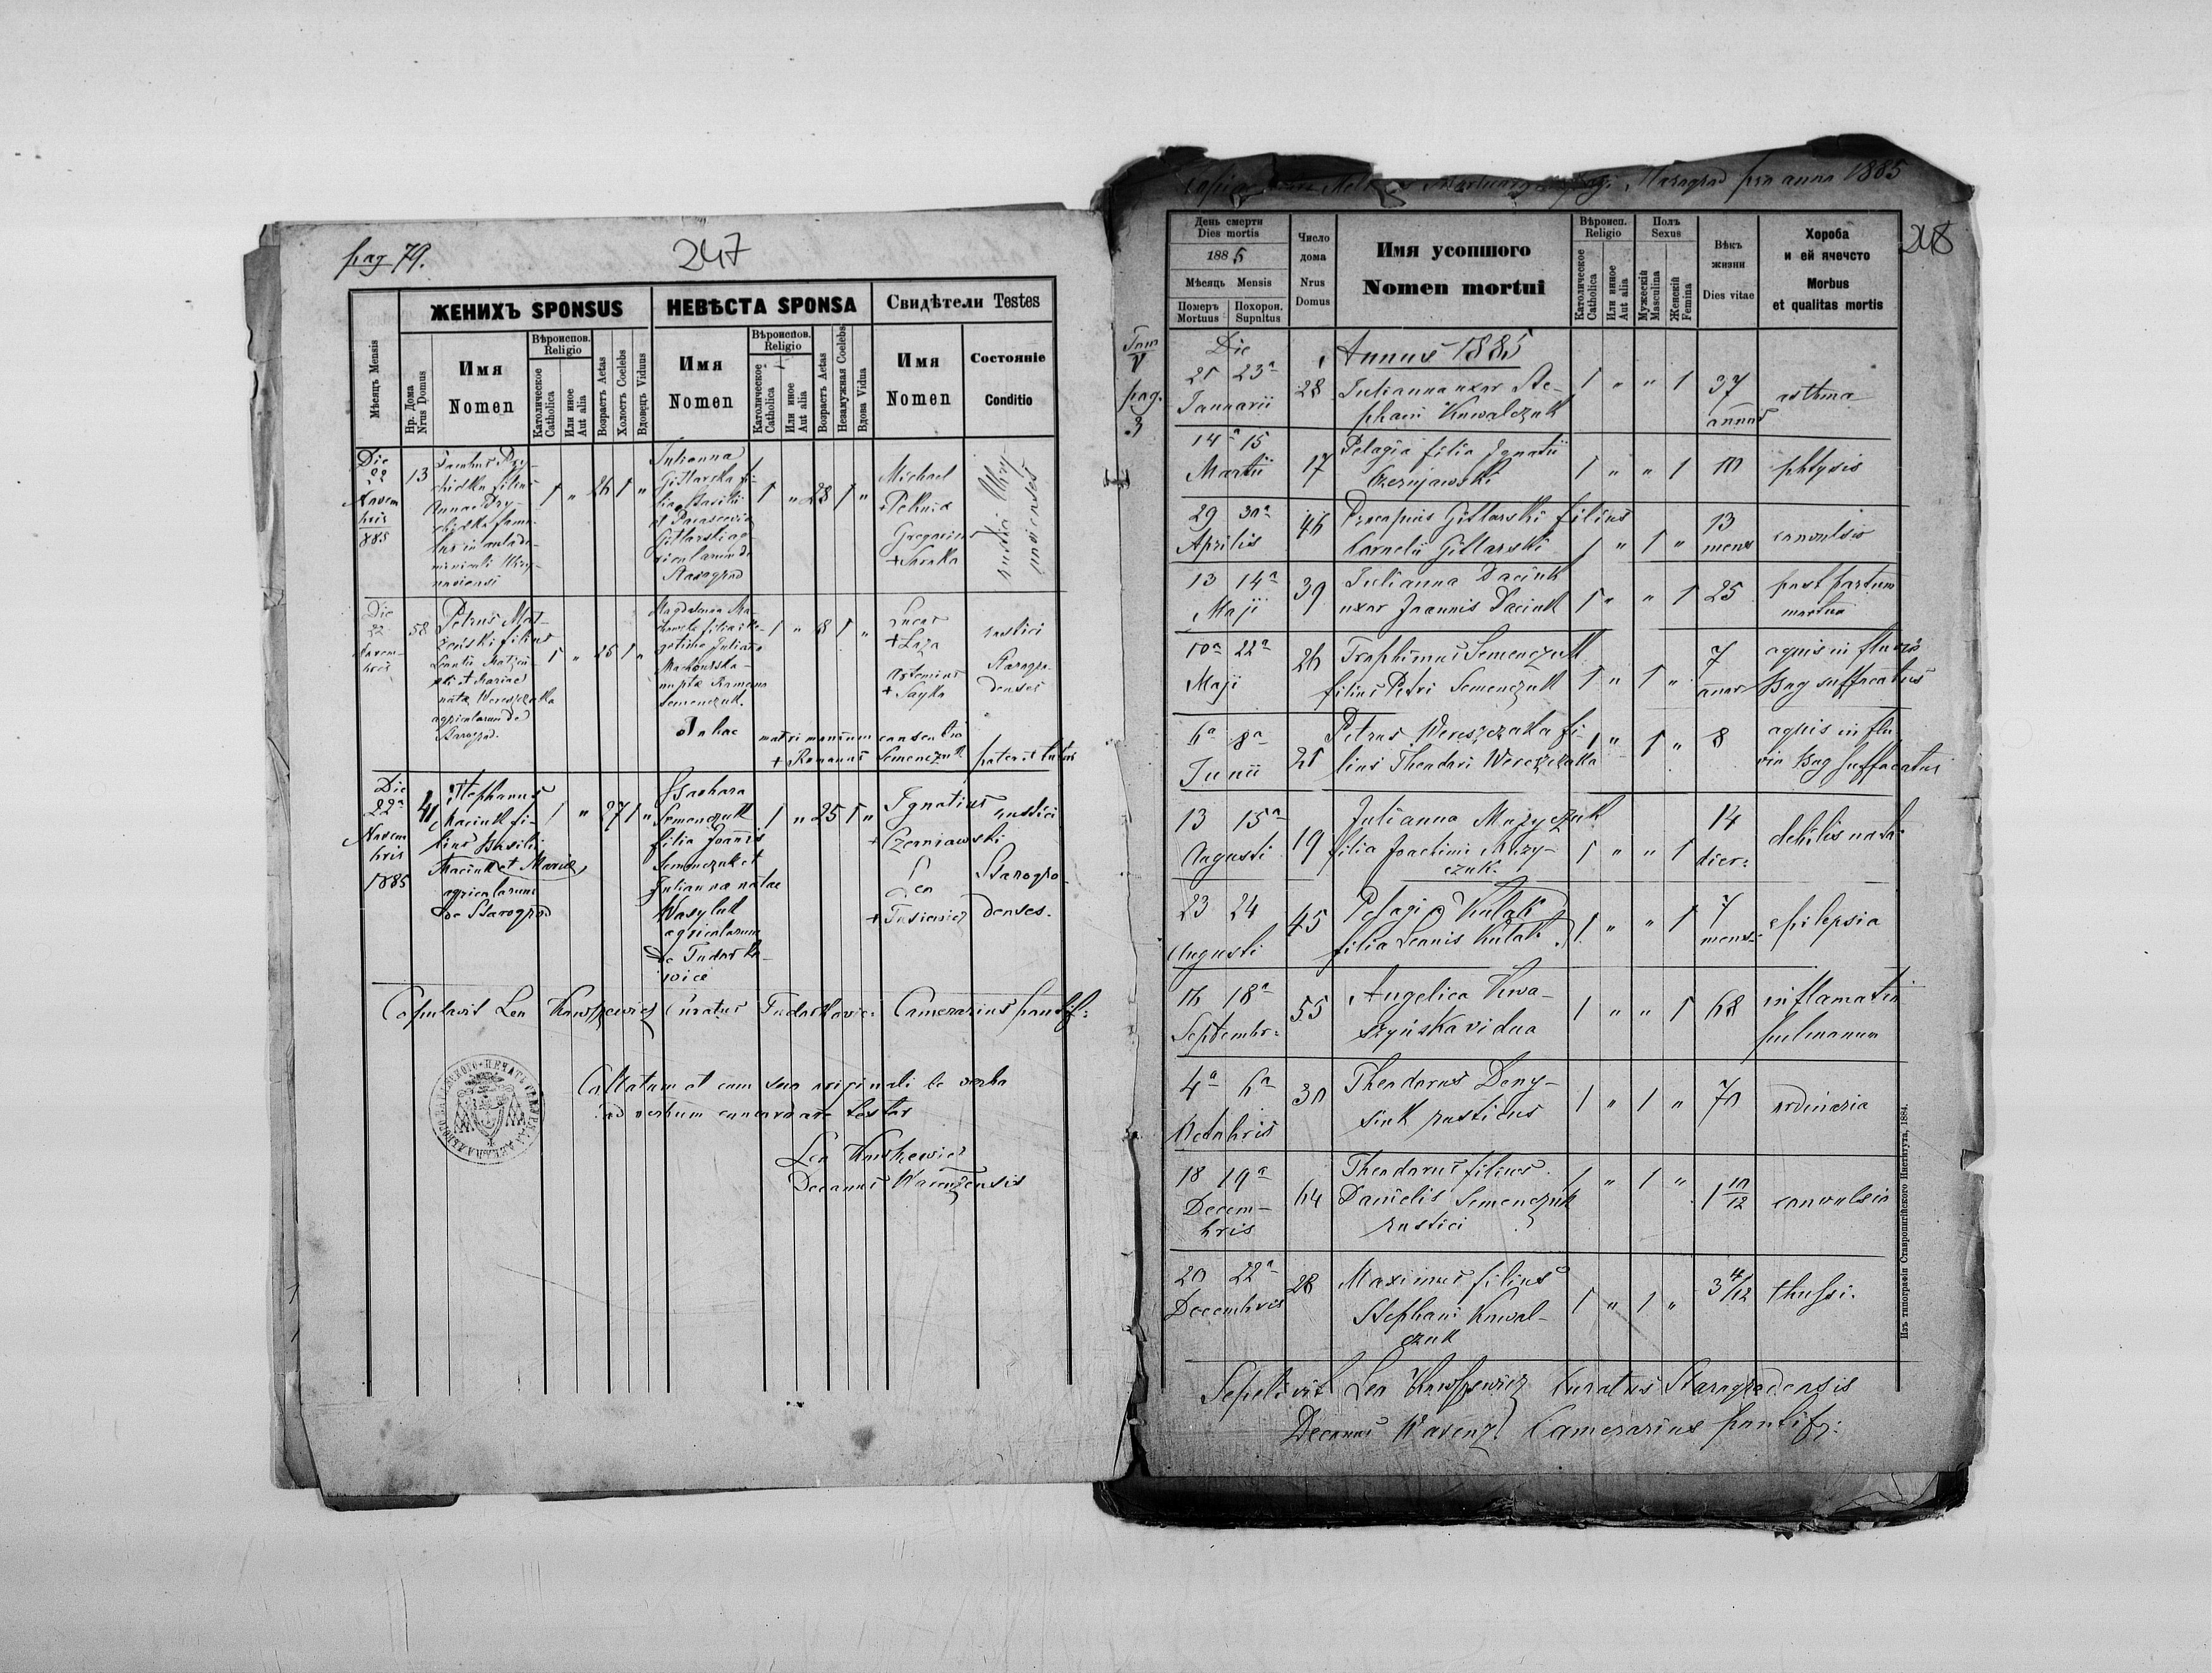 pag 79.
247
Мѣсяць Mensis
ЖЕНИХЪ SPONSUS
НЕВѢСТА SPONSA
Свидѣтели Testes
Нр. Дома
Nrus Domus
Имя
Nomen
Вѣроиспов.
Religio
Католическое
Catholica
Или иное
Aut alia
Возрастъ Aetas
Холостъ Coelebs
Вдовець Viduus
Имя
Nomen
Вѣроиспов.
Religio
Католическое
Catholica
Или иное
Aut alia
Возрастъ Aetas
Незамужная Coelebs
Вдова Vidua
Имя
Nomen
Состояніе
Conditio
Die
22
Novem
bris
885
13
filius
Anna
1 " 26 1 "
Julianna
Gittarska fi-
lia Basilii
et Parascevia
Gittarski ag-
ricolarum de
Starograd
1 " 28 1 "
Michael
+
Gregorius
+
rustici
Die
22
Novem-
bris
58
Petrus Mot-
filius
et Mariae
natae Wereszczaka
agricolarum de
Starograd.
1 " 25 1 "
Magdalena
filia
Juliana
nuptae Romano
Semenczuk.
1 " 8 1 "
Lucas
+ Łaza
Artemius
+ Sayka
rustici
Starogro-
denses
In hac matrimonium consentio
+ Romanus Semenczuk pater et tutor
Die
22a
Novem
bris
1885
41
Stephanus
Maciuk fi-
lius Basilii
Maciuk et Mariae
agricolarum
de Starogrod
1 " 27 1 "
Barbara
Semenczuk
filia Joannis
Semenczuk et
Julianna natae
Wasyluk
agricolarum
de Tudorko-
wice
1 " 25 1 "
Ignatius
+ Czerniawski
Leo
+ Tusiewicz
rustici
Starogro-
denses.
Copulavit Leo Kowszewicz Curatus Tudorkovic: Camerarius pontif:
Collatum et cum suo originali de verbo
ad verbum concordare testor
Leo Kowszewicz
Decanus Warenzensis
Starograd pro anno 1885
248
День смерти
Dies mortis
1885
Мѣсяць Mensis
Померъ
Mortuus
Похорон.
Supultus
Число
дома
Nrus
Domus
Имя усопшого
Nomen mortui
Вѣроисп.
Religio
Католическое
Catholica
Или инное
Aut alia
Полъ
Sexus
Мужескій
Masculina
Женскій
Femina
Вѣкъ
жизни
Dies vitae
Хороба
и ей ячечсто
Morbus
et qualitas mortis
Tom
V
pag.
3
Die
Annus 1885
21 23a
Januarii
28
Julianna uxor Ste-
phani Kowalczuk
1 " " 1
37
annos
asthma
14a 15
Martii
17
Pelagia filia Ignatii
Czerniawski
1 " " 1
10
phtysis
29 30a
Aprilis
46
Procopius Gittarski filius
Cornelii Gittarski
1 " 1 "
13
mens
convulsio
13 14a
Maji
39
Julianna Daciuk
uxor Joannis Daciuk
1 " " 1
25
post partum
mortua
10a 22a
Maji
26
Trophimus Semenczuk
filius Petri Semenczuk
1 " 1 "
7
annor
aquis in fluvio
Bug suffocatus
6a 8a
Junii
21
Petrus Wereszczaka fi
lius Theodori Wereszczaka
1 " 1 "
8
aquis in flu
vio Bug suffocatus
13 15a
Augusti
19
Julianna Mazyczuk
filia Joachimi Mazy-
czuk.
1 " " 1
14
dier:
debilis nata
23 24
Augusti
45
Pelagia Kulak
filia Leonis Kulak
1 " " 1
7
mens.
epilepsia
16 18a
Septembr:
55
Angelica Kwa-
szyńska vidua
1 " " 1
68
inflamatio
pulmonum
4a 6a
Octobris
30
Theodorus Deny-
siuk rusticus
1 " 1 "
70
ordinaria
18 19a
Decem-
bris
64
Theodorus filius
Danielis Semenczuk
rustici
1 " 1 "
1 10/12
convulsio
20 22a
Decembris
28
Maximus filius
Stephani Kowal-
czuk
1 " 1 "
3 4/12
thussi.
Sepelivit Leo Kowszewicz Curatus Starogradensis
Decanus Warenz. Camerarius pontif:
Изъ типографіи Ставропигійского Института, 1884.